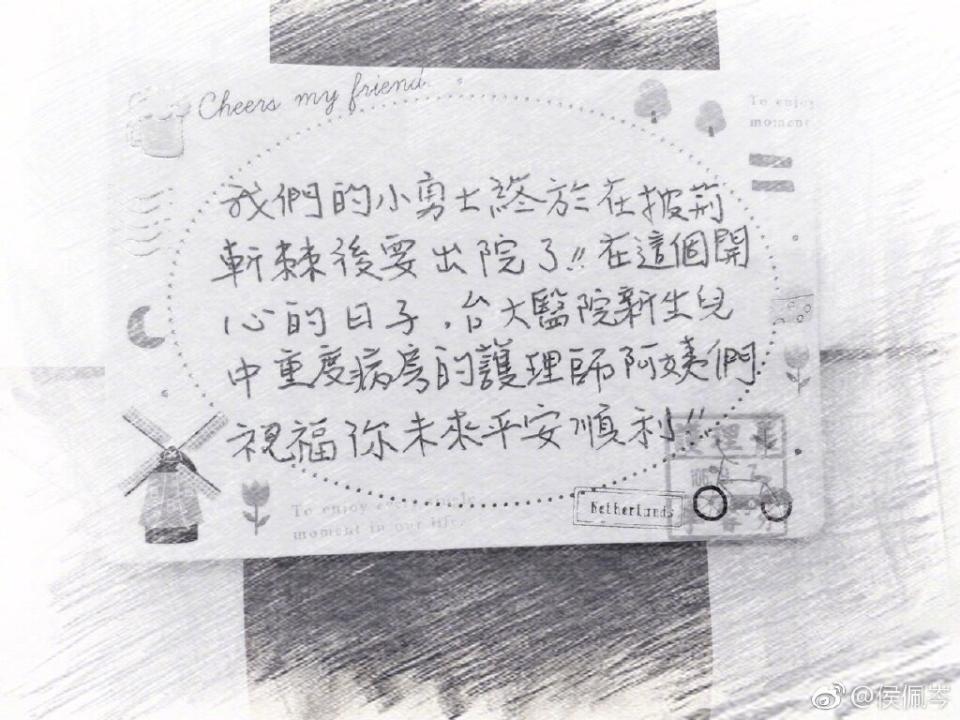 Cheers my friend
To enjoy
moment
我們的小勇士終於在披荊
斬棘後要出院了!!在這個開
心的日子,台大醫院新生兒
中重度病房的護理師阿姨們
祝福你未來平安順利!!
To enjoy every single
moment in our life.
Netherlands
@侯佩岑